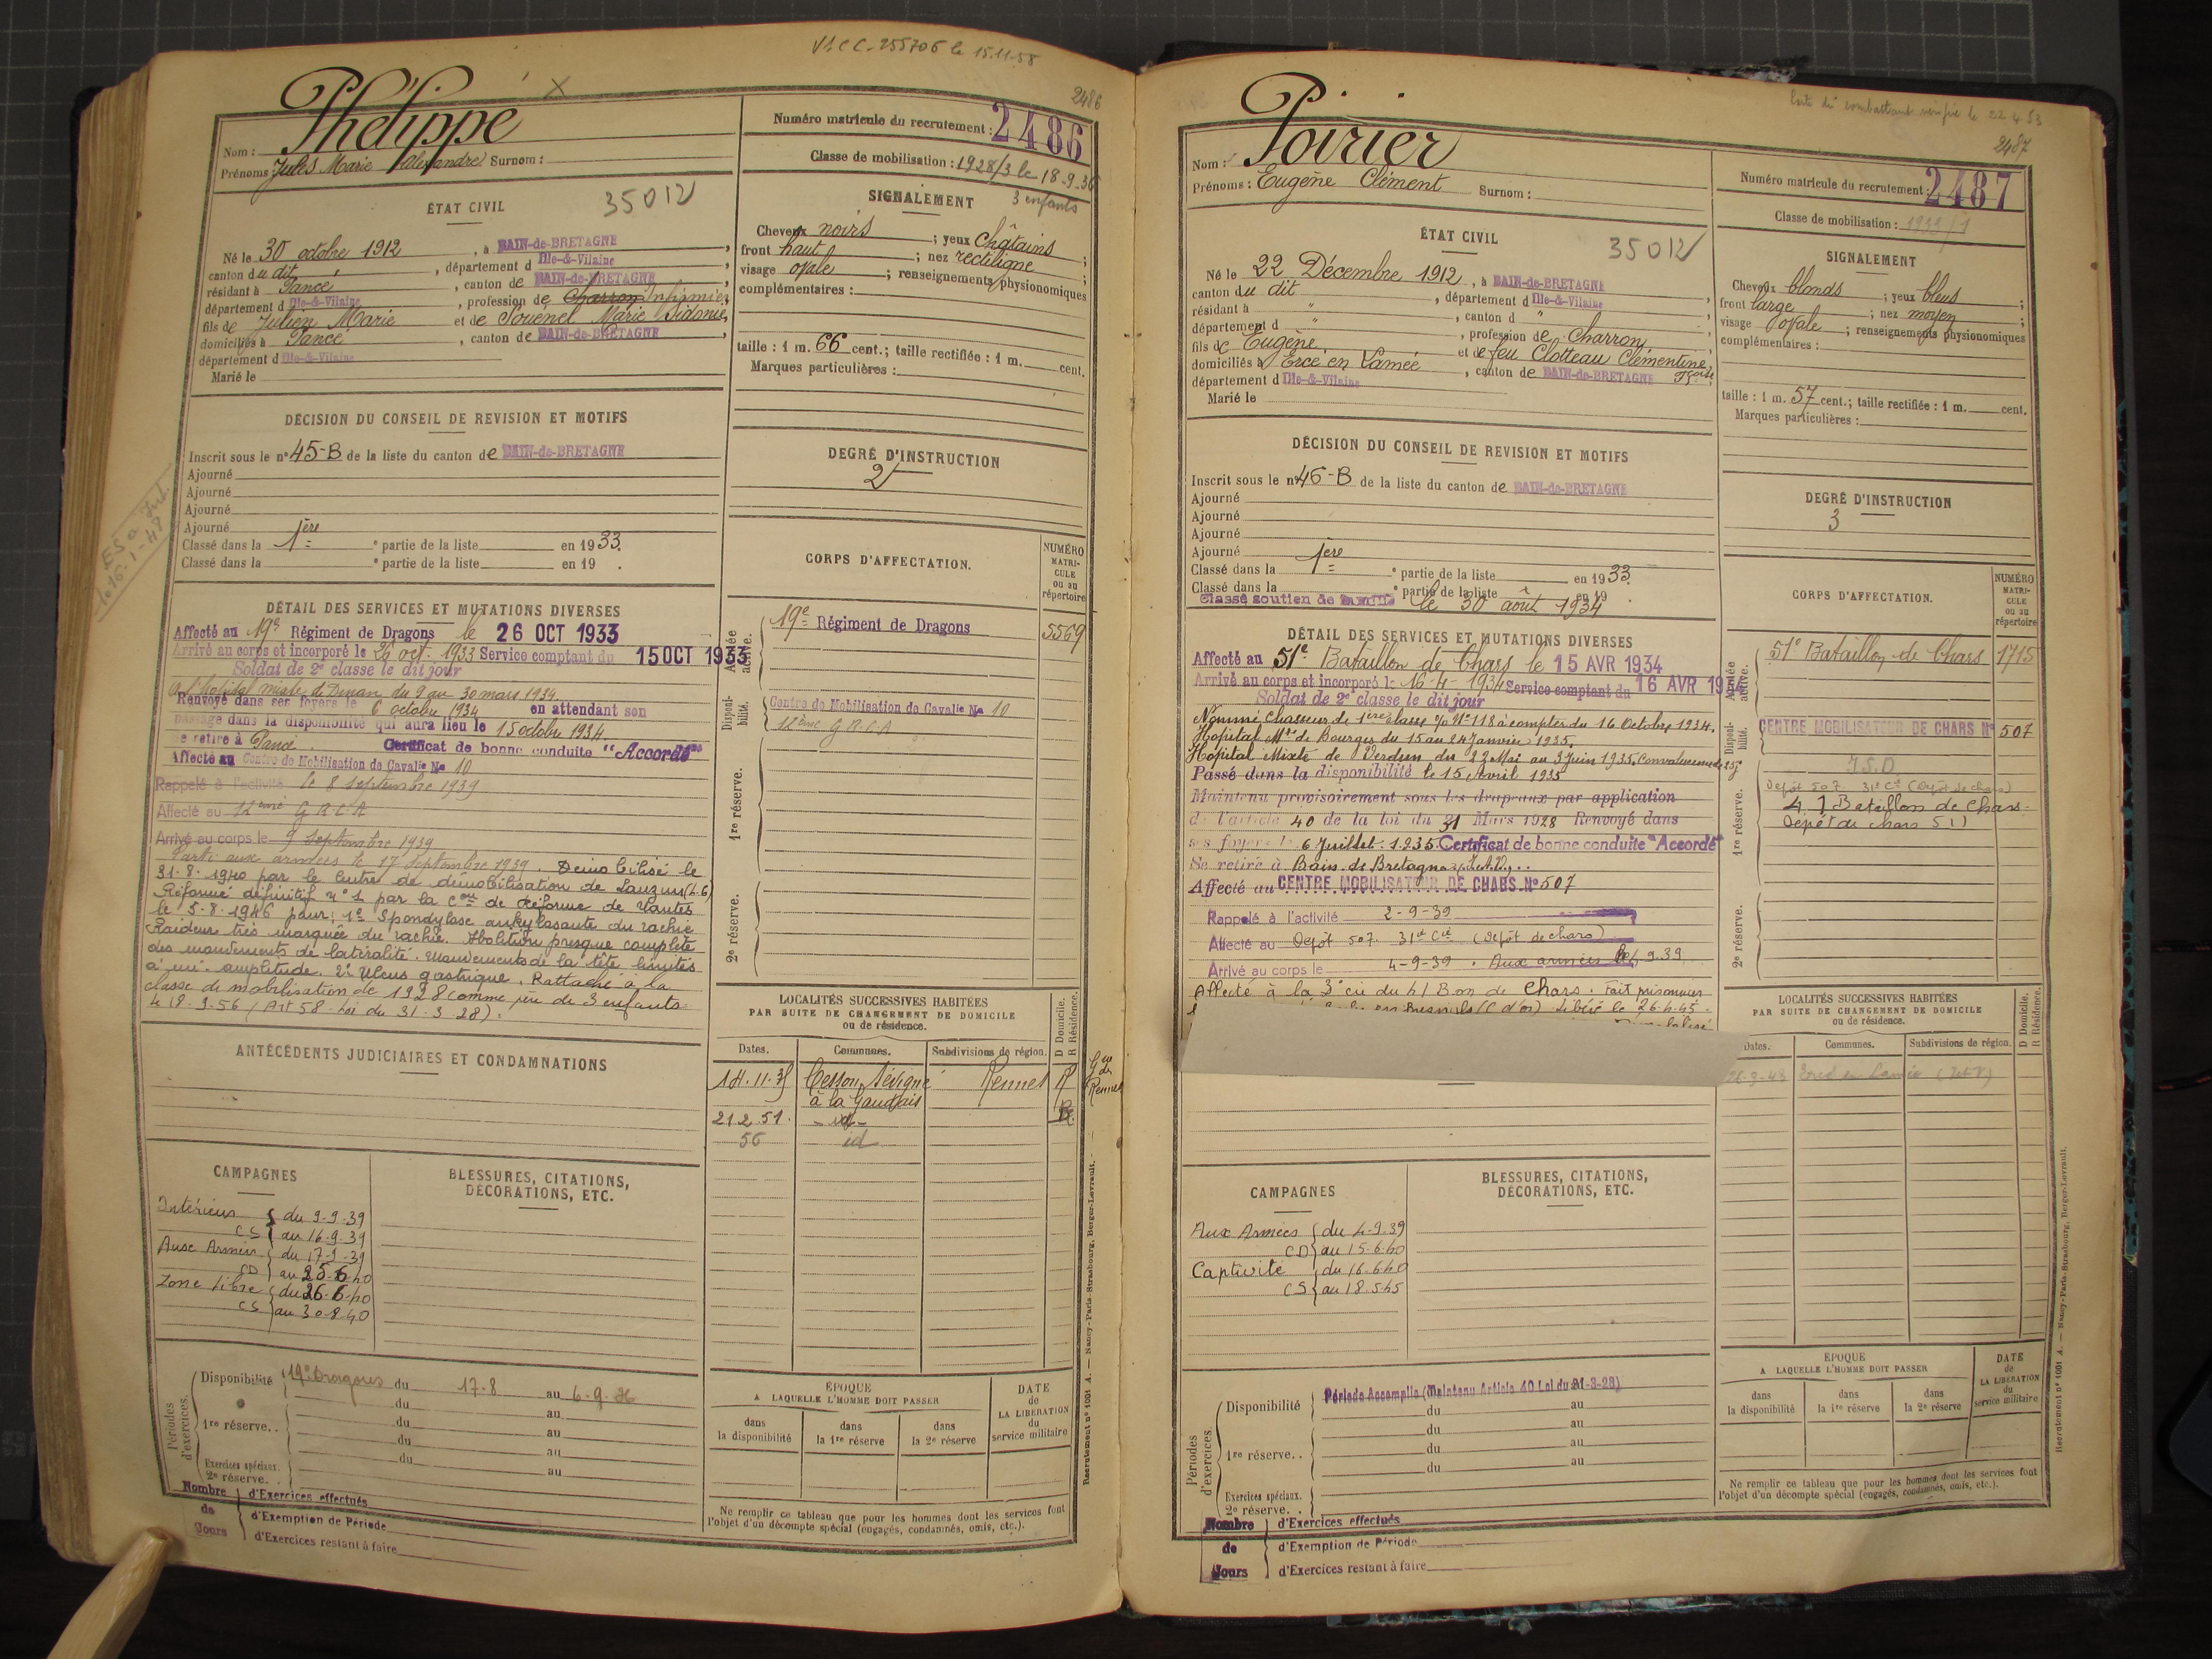 V.C.C. 255706 le 15.11.58
2486
Nom : Phelippé
Prénoms : Jules Marie Alexandre Surnom :
Numéro matricule du recrutement : 2486
Classe de mobilisation : 1928/3 le 18-9-56
3 enfants
ÉTAT CIVIL
35012
Né le 30 octobre 1912, à BAIN-de-BRETAGNE,
canton du dit, département d Ille-&-Vilaine,
résidant à Pancé, canton de BAIN-de-BRETAGNE,
département d Ille-&-Vilaine, profession de Charron Infirmier
fils de Julien Marie et de Souenel Marie Sidonie,
domiciliés à Pancé, canton de BAIN-de-BRETAGNE,
département d Ille-&-Vilaine
Marié le
SIGNALEMENT
Cheveux noirs ; yeux châtains ;
front haut ; nez rectiligne ;
visage ovale ; renseignements physionomiques
complémentaires :
taille : 1 m. 66 cent. ; taille rectifiée : 1 m. cent.
Marques particulières :
DÉCISION DU CONSEIL DE REVISION ET MOTIFS
Inscrit sous le n° 45-B de la liste du canton de BAIN-de-BRETAGNE
Ajourné
Ajourné
Ajourné
Ajourné
Classé dans la 1ère e partie de la liste en 1933.
Classé dans la e partie de la liste en 19 .
DEGRÉ D'INSTRUCTION
2
DÉTAIL DES SERVICES ET MUTATIONS DIVERSES
Affecté au 19e Régiment de Dragons le 26 OCT 1933
Arrivé au corps et incorporé le 26 oct. 1933 Service comptant du 15 OCT 1933
Soldat de 2e classe le dit jour
A l'hôpital mixte de Dinan du 9 au 30 mars 1934
Renvoyé dans ses foyers le 6 octobre 1934 en attendant son
passage dans la disponibilité qui aura lieu le 15 octobre 1934.
Se retire à Pancé. Certificat de bonne conduite "Accordé"
Affecté au Centre de Mobilisation de Cavalie No 10
Rappelé à l'activité le 8 septembre 1939
Affecté au 12ème G R C A
Arrivé au corps le 9 septembre 1939
Parti aux armées le 17 septembre 1939. Démobilisé le
31.8.1940 par le Centre de démobilisation de Lauzun (L.G)
Réformé définitif n° 1 par la Con de Réforme de Nantes
le 5-8-1946 pour : 1° Spondylose ankylosante du rachis
Raideur très marquée du rachis. Abolition presque complète
des mouvements de latéralité. Mouvements de la tête limités
à mi-amplitude. 2° Ulcus gastrique. Rattaché à la
classe de mobilisation de 1928 comme père de 3 enfants
le 18.9.56 (Art 58. loi du 31.3.28).
CORPS D'AFFECTATION.
NUMÉRO MATRICULE ou au répertoire
Armée active.
19e Régiment de Dragons 5569
Disponibilité.
Centre de Mobilisation de Cavalie No 10
12ème G R C A
1re réserve.
2e réserve.
LOCALITÉS SUCCESSIVES HABITÉES
PAR SUITE DE CHANGEMENT DE DOMICILE
ou de résidence.
D Domicile. R Résidence.
Dates. Communes. Subdivisions de région.
14.11.35 Cesson Sévigné Rennes R
à la Gaudrais
21.2.51. -id- R
56 id
ANTÉCÉDENTS JUDICIAIRES ET CONDAMNATIONS
CAMPAGNES
Intérieur CS du 9-9-39 au 16-9-39
Aux Armées CD du 17-9-39 au 25-6-40
Zone libre CS du 26-6-40 au 30-8-40
BLESSURES, CITATIONS,
DÉCORATIONS, ETC.
Périodes d'exercices.
Disponibilité 19e Dragons du 17-8 au 6-9-36
du au
1re réserve.. du au
du au
Exercices spéciaux. du au
2e réserve. . au
Nombre de Jours
d'Exercices effectués
d'Exemption de Période
d'Exercices restant à faire
ÉPOQUE
A LAQUELLE L'HOMME DOIT PASSER
dans la disponibilité
dans la 1re réserve
dans la 2e réserve
DATE de LA LIBÉRATION du service militaire
Ne remplir ce tableau que pour les hommes dont les services font
l'objet d'un décompte spécial (engagés, condamnés, omis, etc.).
Recrutement n° 1001 A. — Nancy-Paris-Strasbourg, Berger-Levrault.
Carte du combattant vérifiée le 22 4 53
2487
Nom : Poirier
Prénoms : Eugène Clément Surnom :
Numéro matricule du recrutement : 2487
Classe de mobilisation : 1933/1
ÉTAT CIVIL
35012
Né le 22 Décembre 1912, à BAIN-de-BRETAGNE
canton du dit, département d Ille-&-Vilaine,
résidant à ", canton d "
département d ", profession de Charron
fils de Eugène et de feu Clotteau Clémentine Fçoise
domiciliés à Ercé en Lamée, canton de BAIN-de-BRETAGNE
département d Ille-&-Vilaine
Marié le
SIGNALEMENT
Cheveux blonds ; yeux bleus ;
front large ; nez moyen ;
visage ovale ; renseignements physionomiques
complémentaires :
taille : 1 m. 57 cent. ; taille rectifiée : 1 m. cent.
Marques particulières :
DÉCISION DU CONSEIL DE REVISION ET MOTIFS
Inscrit sous le n° 46-B de la liste du canton de BAIN-de-BRETAGNE
Ajourné
Ajourné
Ajourné
Ajourné
Classé dans la 1ère e partie de la liste en 1933.
Classé dans la e partie de la liste en 19 .
Classé soutien de famille le 30 août 1934
DEGRÉ D'INSTRUCTION
3
DÉTAIL DES SERVICES ET MUTATIONS DIVERSES
Affecté au 51e Bataillon de Chars le 15 AVR 1934
Arrivé au corps et incorporé le 16-4-1934 Service comptant du 16 AVR 1934
Soldat de 2e classe le dit jour
Nommé Chasseur de 1ère classe o/o N°118 à compter du 16 Octobre 1934.
Hôpital Mre de Bourges du 15 au 24 Janvier 1935.
Hôpital Mixte de Verdun du 22 Mai au 3 Juin 1935. Convalescence de 25j
Passé dans la disponibilité le 15 Avril 1935
Maintenu provisoirement sous les drapeaux par application
de l'article 40 de la loi du 31 Mars 1928 Renvoyé dans
ses foyers le 6 Juillet 1935 Certificat de bonne conduite "Accordé"
Se retire à Bain de Bretagne
Affecté au CENTRE MOBILISATEUR DE CHARS No 507
Rappelé à l'activité 2-9-39
Affecté au Dépôt 507. 31e Cie (Dépôt de chars)
Arrivé au corps le 4-9-39. Aux armées le 4.9.39
Affecté à la 3e cie du 41 Bon de Chars. Fait prisonnier
Libéré le 26-4-45
CORPS D'AFFECTATION.
NUMÉRO MATRICULE ou au répertoire
Armée active.
51e Bataillon de Chars 1715
Disponibilité.
CENTRE MOBILISATEUR DE CHARS No 507
1re réserve.
Dépôt 507. 31e Cie (Dépôt de chars)
41 Bataillon de Chars
Dépôt de chars 511
2e réserve.
LOCALITÉS SUCCESSIVES HABITÉES
PAR SUITE DE CHANGEMENT DE DOMICILE
ou de résidence.
D Domicile. R Résidence.
Dates. Communes. Subdivisions de région.
Ercé en Lamée (I et V)
CAMPAGNES
Aux Armées CD du 4-9-39 au 15-6-40
Captivité CS du 16-6-40 au 18-5-45
BLESSURES, CITATIONS,
DÉCORATIONS, ETC.
Périodes d'exercices.
Période Accomplie (Maintenu Article 40 Loi du 31-3-28)
Disponibilité du au
du au
1re réserve.. du au
du au
Exercices spéciaux.
2e réserve. .
Nombre de Jours
d'Exercices effectués
d'Exemption de Période
d'Exercices restant à faire
ÉPOQUE
A LAQUELLE L'HOMME DOIT PASSER
dans la disponibilité
dans la 1re réserve
dans la 2e réserve
DATE de LA LIBÉRATION du service militaire
Ne remplir ce tableau que pour les hommes dont les services font
l'objet d'un décompte spécial (engagés, condamnés, omis, etc.).
Recrutement n° 1001 A. — Nancy-Paris-Strasbourg, Berger-Levrault.